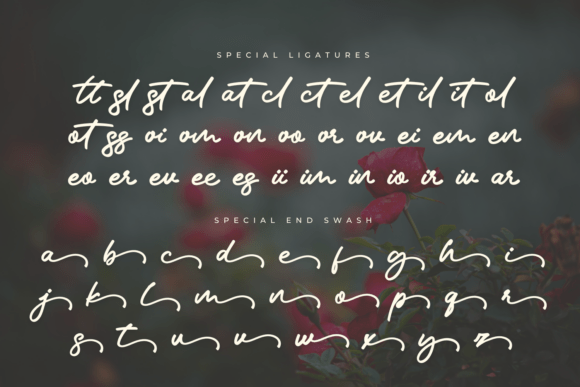 SPECIAL LIGATURES
tt sl st al at cl ct el et il it ol
ot ss oi om on oo or ov ei em en
eo er ev ee es ii im in io ir iv ar
SPECIAL END SWASH
a b c d e f g h i
j k l m n o p q r
s t u v w x y z